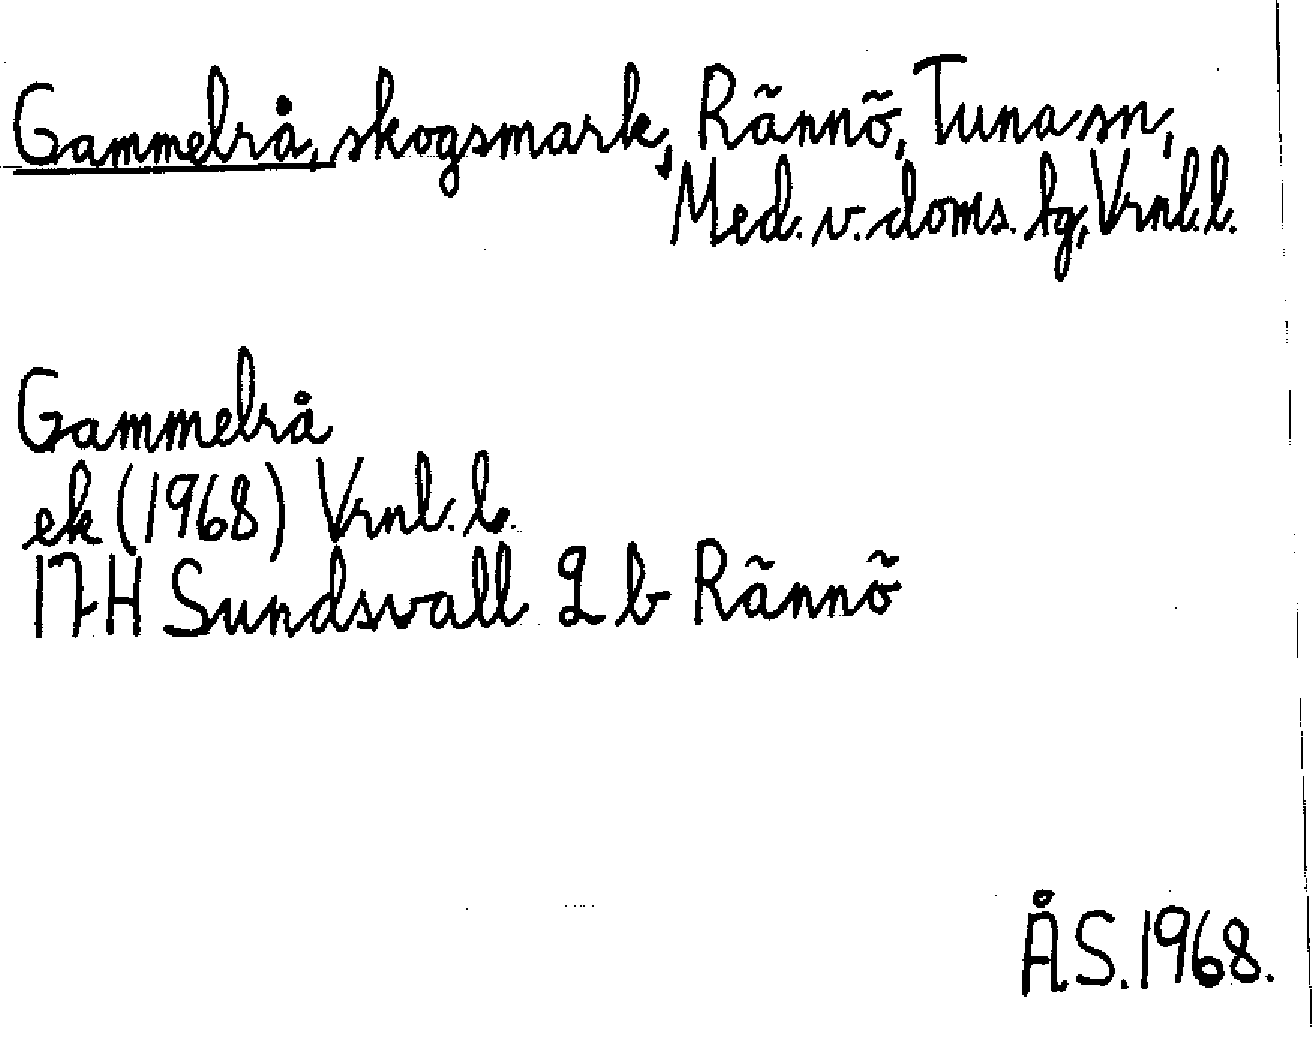 Gammelrå, skogsmark, Rännö, Tuna sn,
Med. v. doms. fg, Vrnl. l.
Gammelrå
ek (1968) Vrnl. l.
17H Sundsvall 2 b Rännö
ÅS. 1968.